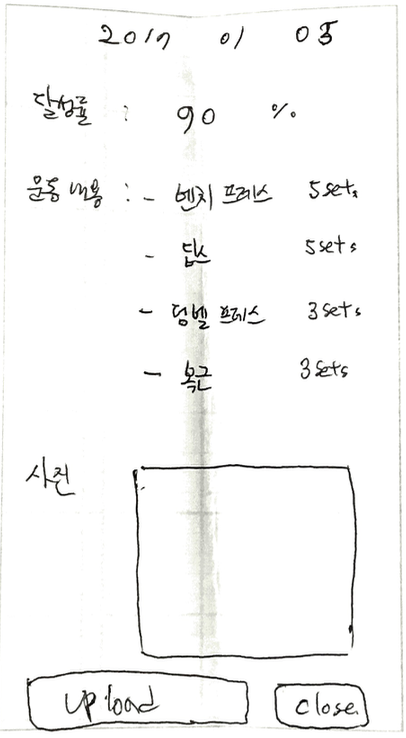 2017 01 05
달성률 : 90 %
운동 내용 : - 벤치 프레스 5sets
- 딥스 5sets
- 덤벨 프레스 3sets
- 복근 3sets
사진
upload close